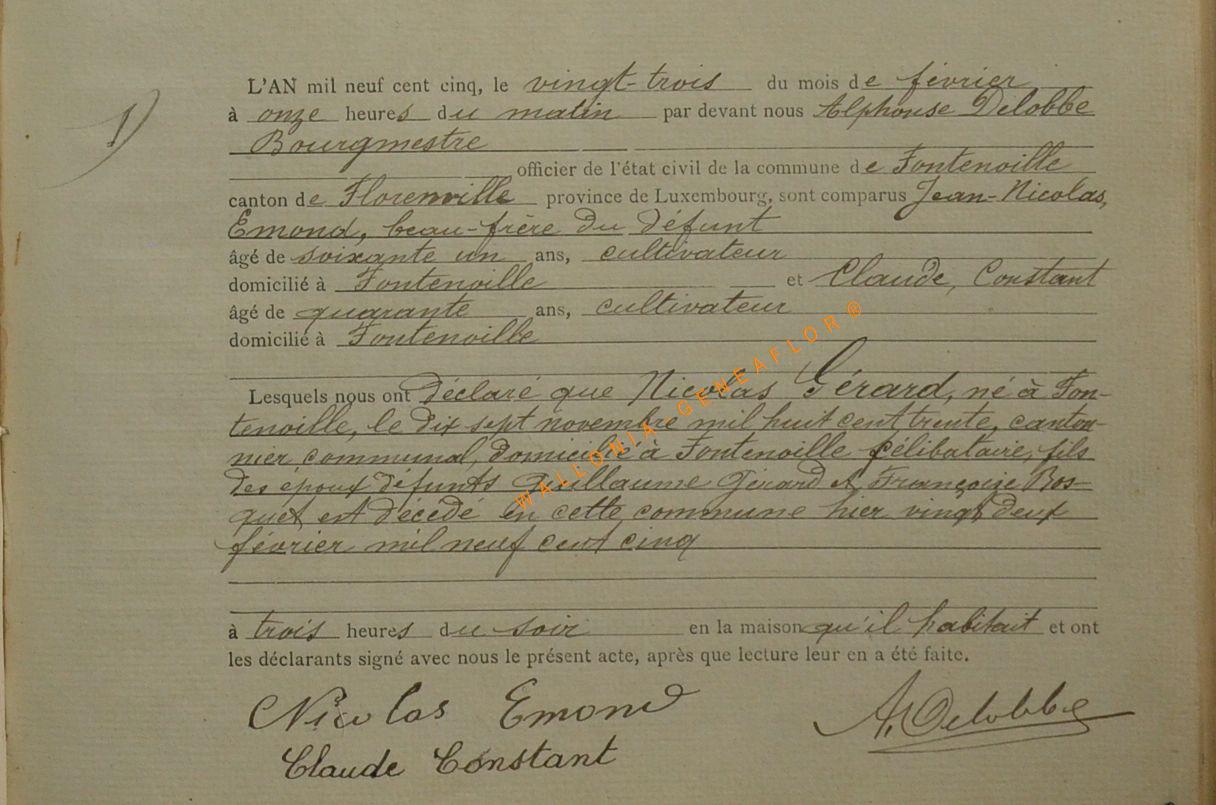 1)
L'AN mil neuf cent cinq, le vingt-trois du mois de février
à onze heures du matin par devant nous Alphonse Delobbe
Bourgmestre
officier de l'état civil de la commune de Fontenoille
canton de Florenville province de Luxembourg, sont comparus Jean-Nicolas,
Emond, beau-frère du défunt
âgé de soixante un ans, cultivateur
domicilié à Fontenoille et Claude, Constant
âgé de quarante ans, cultivateur
domicilié à Fontenoille
Lesquels nous ont déclaré que Nicolas Gérard, né à Fon-
tenoille, le dix sept novembre mil huit cent trente, canton-
nier communal, domicilié à Fontenoille célibataire, fils
des époux défunts Guillaume Gérard et Françoise Bos-
quet est décédé en cette commune hier vingt deux
février mil neuf cent cinq
à trois heures du soir en la maison qu'il habitait et ont
les déclarants signé avec nous le présent acte, après que lecture leur en a été faite.
Nicolas Emond A. Delobbe
Claude Constant
WALLONIA-GENEAFLOR®